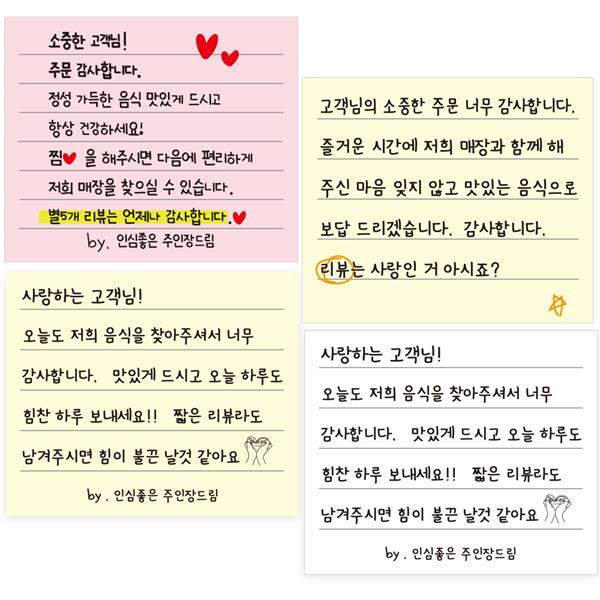 소중한 고객님!
주문 감사합니다.
정성 가득한 음식 맛있게 드시고
항상 건강하세요!
찜♥ 을 해주시면 다음에 편리하게
저희 매장을 찾으실 수 있습니다.
별5개 리뷰는 언제나 감사합니다.♥
by. 인심좋은 주인장드림
고객님의 소중한 주문 너무 감사합니다.
즐거운 시간에 저희 매장과 함께 해
주신 마음 잊지 않고 맛있는 음식으로
보답 드리겠습니다. 감사합니다.
리뷰는 사랑인 거 아시죠?
사랑하는 고객님!
오늘도 저희 음식을 찾아주셔서 너무
감사합니다. 맛있게 드시고 오늘 하루도
힘찬 하루 보내세요!! 짧은 리뷰라도
남겨주시면 힘이 불끈 날것 같아요
by. 인심좋은 주인장드림
사랑하는 고객님!
오늘도 저희 음식을 찾아주셔서 너무
감사합니다. 맛있게 드시고 오늘 하루도
힘찬 하루 보내세요!! 짧은 리뷰라도
남겨주시면 힘이 불끈 날것 같아요
by. 인심좋은 주인장드림